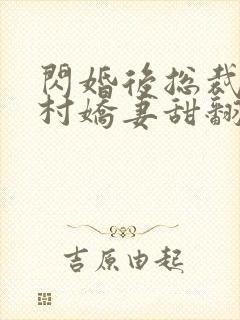 閃婚後总裁
村嬌妻甜翻
吉原由起